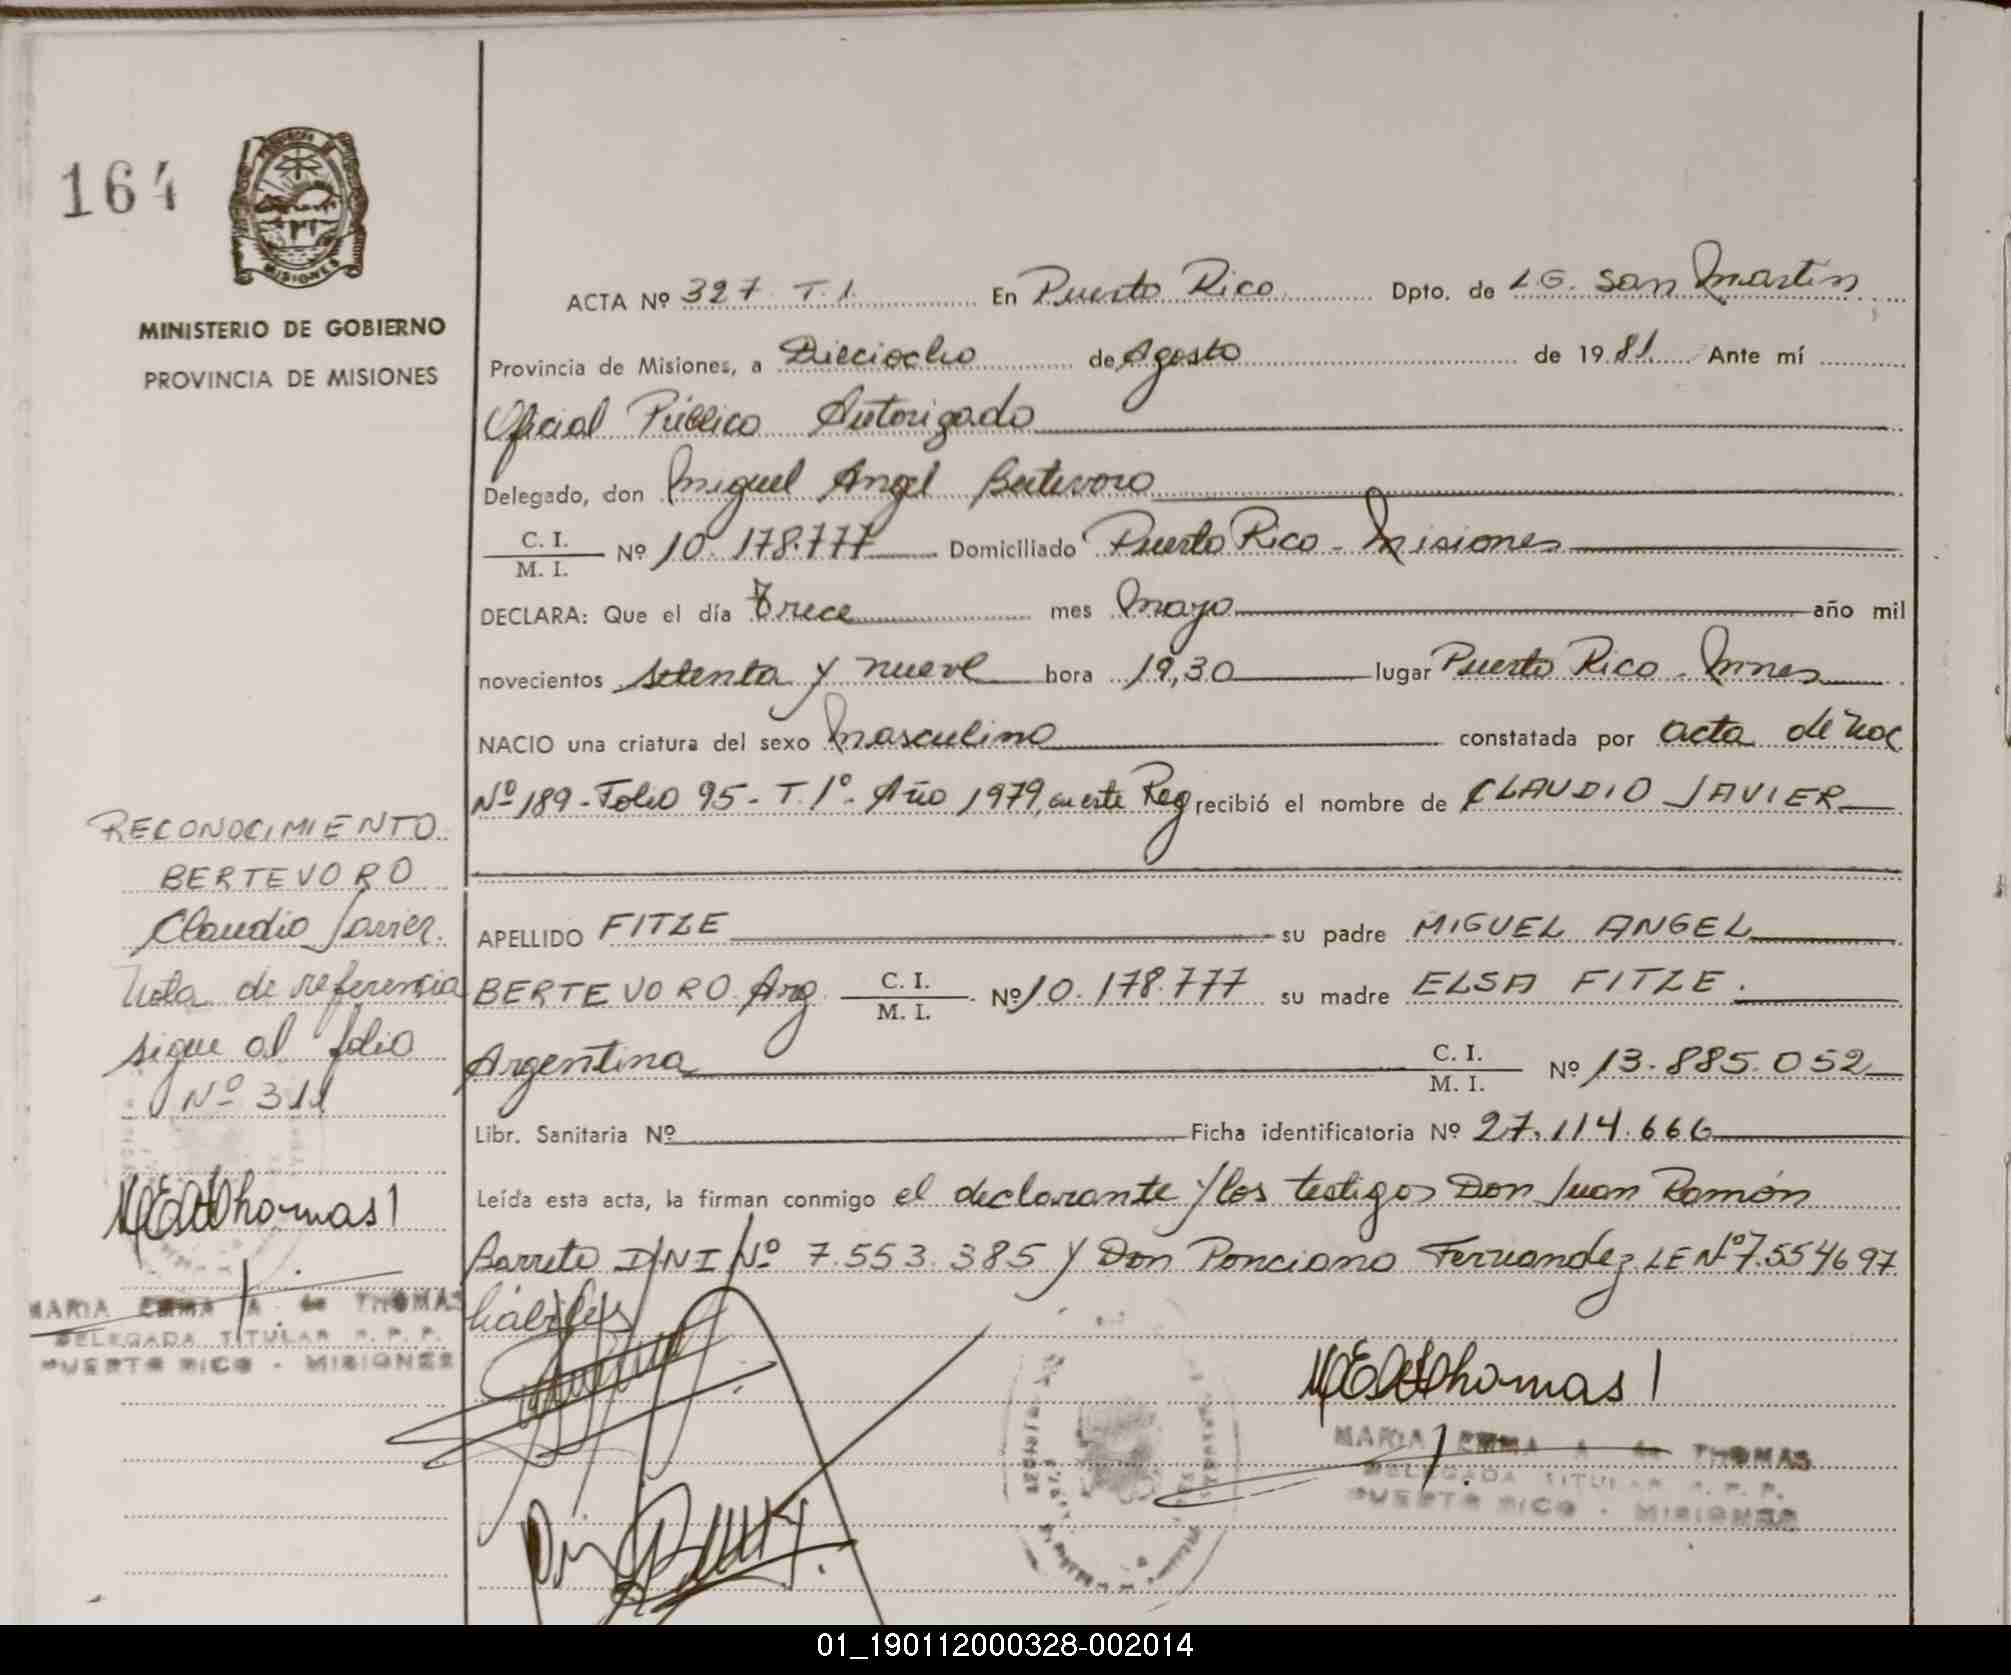 164
MISIONES
MINISTERIO DE GOBIERNO
PROVINCIA DE MISIONES
RECONOCIMIENTO
BERTEVORO
Claudio Javier.
Nota de referencia
sigue al folio
Nº 311
MEAdThomas
MARIA EMMA A. de THOMAS
DELEGADA TITULAR R. P. P.
PUERTO RICO - MISIONES
ACTA Nº 327 T.1. En Puerto Rico Dpto. de LG. San Martín
Provincia de Misiones, a Dieciocho de Agosto de 1981 Ante mí
Oficial Público Autorizado
Delegado, don Miguel Angel Bertevoro
C. I.
M. I. Nº 10.178.777 Domiciliado Puerto Rico - Misiones
DECLARA: Que el día Trece mes Mayo año mil
novecientos setenta y nueve hora 19,30 lugar Puerto Rico - Mnes
NACIO una criatura del sexo Masculino constatada por acta de Nac
Nº 189 - Folio 95 - T. 1º - Año 1979, en este Reg recibió el nombre de CLAUDIO JAVIER
APELLIDO FITZE su padre MIGUEL ANGEL
BERTEVORO Arg. C. I.
M. I. Nº 10.178.777 su madre ELSA FITZE.
Argentina C. I.
M. I. Nº 13.885.052
Libr. Sanitaria Nº Ficha identificatoria Nº 27.114.666
Leída esta acta, la firman conmigo el declarante y los testigos Don Juan Ramón
Barreto DNI Nº 7.553.385 y Don Ponciano Fernandez LE Nº 7.554697
hábiles
MEAdThomas
MARIA EMMA A. de THOMAS
DELEGADA TITULAR R. P. P.
PUERTO RICO - MISIONES
01_190112000328-002014